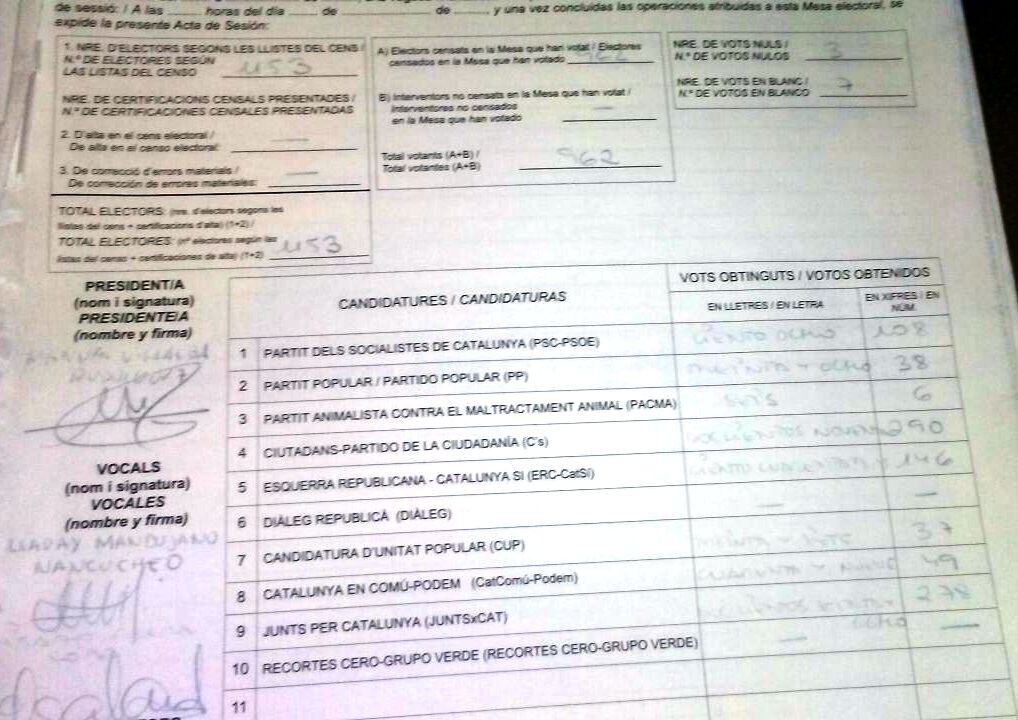 de sessió: / A las horas del día de de , y una vez concluidas las operaciones atribuidas a esta Mesa electoral, se
expide la presente Acta de Sesión:
1. NRE. D'ELECTORS SEGONS LES LLISTES DEL CENS /
N.º DE ELECTORES SEGÚN
LAS LISTAS DEL CENSO 1153
NRE. DE CERTIFICACIONS CENSALS PRESENTADES /
N.º DE CERTIFICACIONES CENSALES PRESENTADAS
2. D'alta en el cens electoral / —
De alta en el censo electoral:
3. De correcció d'errors materials / —
De corrección de errores materiales:
TOTAL ELECTORS: (nre. d'electors segons les
llistes del cens + certificacions d'alta) (1+2) /
TOTAL ELECTORES: (nº electores según las
listas del censo + certificaciones de alta) (1+2) 1153
A) Electors censats en la Mesa que han votat / Electores
censados en la Mesa que han votado 962
B) Interventors no censats en la Mesa que han votat /
Interventores no censados —
en la Mesa que han votado
Total votants (A+B) / 962
Total votantes (A+B)
NRE. DE VOTS NULS /
N.º DE VOTOS NULOS 3
NRE. DE VOTS EN BLANC /
N.º DE VOTOS EN BLANCO 7
PRESIDENT/A
(nom i signatura)
PRESIDENTE/A
(nombre y firma)
VOCALS
(nom i signatura)
VOCALES
(nombre y firma)
MANDUJANO
CANDIDATURES / CANDIDATURAS
VOTS OBTINGUTS / VOTOS OBTENIDOS
EN LLETRES / EN LETRA
EN XIFRES / EN
NÚM.
1 PARTIT DELS SOCIALISTES DE CATALUNYA (PSC-PSOE) CIENTO OCHO 108
2 PARTIT POPULAR / PARTIDO POPULAR (PP) TREINTA Y OCHO 38
3 PARTIT ANIMALISTA CONTRA EL MALTRACTAMENT ANIMAL (PACMA) SEIS 6
4 CIUTADANS-PARTIDO DE LA CIUDADANÍA (C's) DOSCIENTOS NOVENTA 290
5 ESQUERRA REPUBLICANA - CATALUNYA SI (ERC-CatSí) CIENTO 146
6 DIÀLEG REPUBLICÀ (DIÀLEG) — —
7 CANDIDATURA D'UNITAT POPULAR (CUP) TREINTA Y SIETE 37
8 CATALUNYA EN COMÚ-PODEM (CatComú-Podem) CUARENTA Y NUEVE 49
9 JUNTS PER CATALUNYA (JUNTSxCAT) OCHO 278
10 RECORTES CERO-GRUPO VERDE (RECORTES CERO-GRUPO VERDE) — —
11